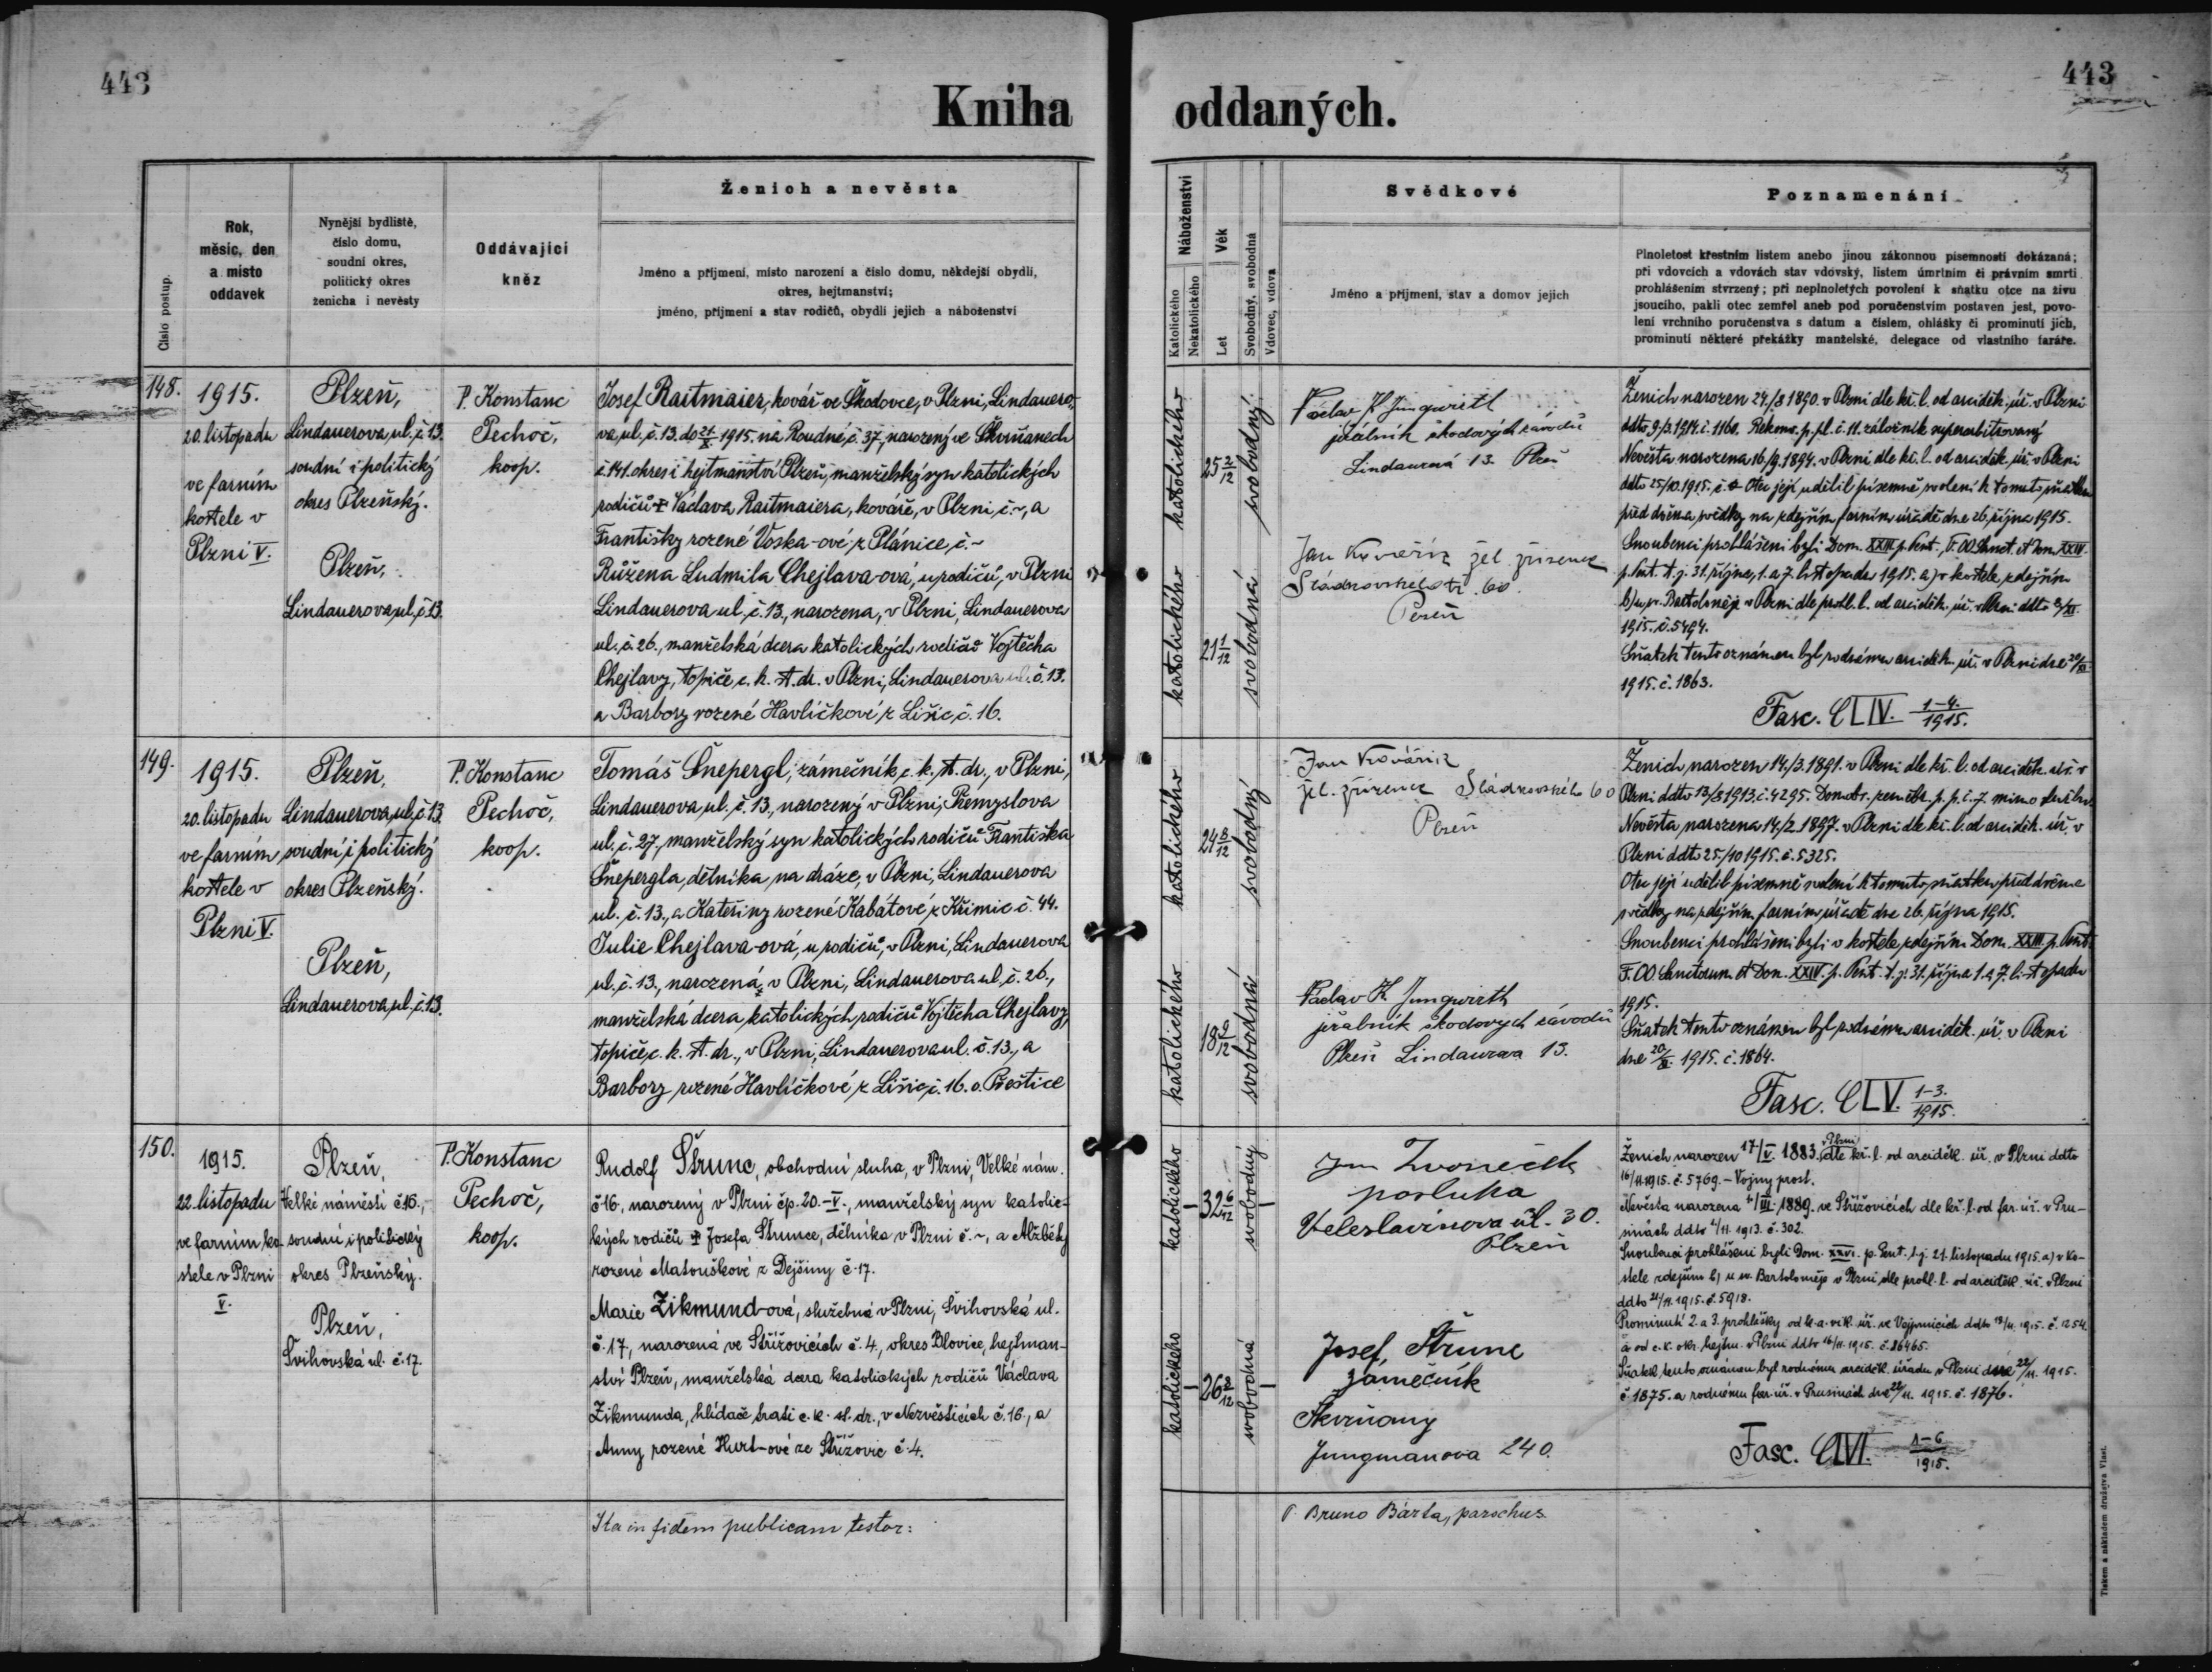 443
443
Kniha oddaných.
Číslo postup.
Rok,
měsíc, den
a místo
oddavek
Nynější bydliště,
číslo domu,
soudní okres,
politický okres
ženicha i nevěsty
Oddávající
kněz
Ženich a nevěsta
Jméno a příjmení, místo narození a číslo domu, někdejší obydlí,
okres, hejtmanství;
jméno, příjmení a stav rodičů, obydlí jejich a náboženství
Náboženství
Katolického
Nekatolického
Věk
Let
Svobodný, svobodná
Vdovec, vdova
Svědkové
Jméno a příjmení, stav a domov jejich
Poznamenání
Plnoletost křestním listem anebo jinou zákonnou písemností dokázaná;
při vdovcích a vdovách stav vdovský, listem úmrtním či právním smrti
prohlášením stvrzený; při neplnoletých povolení k sňatku otce na živu
jsoucího, pakli otec zemřel aneb pod poručenstvím postaven jest, povo-
lení vrchního poručenstva s datum a číslem, ohlášky či prominutí jich,
prominutí některé překážky manželské, delegace od vlastního faráře.
148.
1915.
20. listopadu
ve farním
kostele v
Plzni V.
Plzeň,
Lindauerova ul. č. 13.
soudní i politický
okres Plzeňský.
Plzeň,
Lindauerova ul. č. 13.
P. Konstanc
Pechoč,
koop.
Josef Raitmaier, kovář ve Škodovce, v Plzni, Lindauero-
va ul. č. 13. do 21/X 1915. na Roudné č. 37, narozený ve Skvrňanech
č. 141. okres i hejtmanství Plzeň, manželský syn katolických
rodičů + Václava Raitmaiera, kováře, v Plzni, č. ~, a
Františky rozené Voska-ové z Plánice, č. ~
Růžena Ludmila Chejlava-ová, u rodičů, v Plzni
Lindauerova ul. č. 13., narozena, v Plzni, Lindauerova
ul. č. 26., manželská dcera katolických rodičů Vojtěcha
Chejlavy, topiče c. k. st. dr. v Plzni, Lindauerova ul. č. 13.
a Barbory rozené Havlíčkové z Lišic, č. 16.
katolického
25 2/12
svobodný
katolického
21 1/12
svobodná
Václav K Jungwirth
jeřábník škodových závodů
Lindaurová 13. Plzeň
Jan Kovařík žel. zřízenec
Sládkovského tř. 60.
Plzeň
Ženich narozen 24./8 1890. v Plzni dle kř. l. od arciděk. úř. v Plzni
ddto 9/3. 1914. č. 1160. p. pl. č. 11. záložník superarbitrovaný
Nevěsta narozena 16/9. 1894. v Plzni dle kř. l. od arciděk. úř. v Plzni
ddto 25/10. 1915. č. Otec její udělil písemně svolení k tomuto sňatku
před dvěma svědky na zdejším farním úřadě dne 26. října 1915.
Snoubenci prohlášeni byli Dom. XXIII p. Pent., F. OO Sanct. et Dom. XXIV.
p. Pent. t. j. 31. října, 1. a 7. listopadu 1915. a) v kostele zdejším
b) u sv. Bartoloměje v Plzni dle prohl. l. od arciděk. úř. v Plzni ddto 8/XI.
1915. č. 5494.
Sňatek tento oznámen byl rodnému arciděk. úř. v Plzni dne 20/XI
1915. č. 1863.
Fasc. CLIV. 1-4./1915.
149.
1915.
20. listopadu
ve farním
kostele v
Plzni V.
Plzeň,
Lindauerova ul. č. 13.
soudní i politický
okres Plzeňský.
Plzeň,
Lindauerova ul. č. 13.
P. Konstanc
Pechoč,
koop.
Tomáš Šnepergl, zámečník c. k. st. dr., v Plzni,
Lindauerova ul. č. 13., narozený v Plzni, Přemyslova
ul. č. 27., manželský syn katolických rodičů Františka
Šnepergla, dělníka na dráze, v Plzni, Lindauerova
ul. č. 13., a Kateřiny rozené Kabátové z Křimic č. 44.
Julie Chejlava-ová, u rodičů, v Plzni, Lindauerova
ul. č. 13., narozená v Plzni, Lindauerova ul. č. 26.,
manželská dcera katolických rodičů Vojtěcha Chejlavy,
topiče c. k. st. dr., v Plzni, Lindauerova ul. č. 13., a
Barbory rozené Havlíčkové z Lišic, č. 16. o. Přeštice
katolického
24 8/12
svobodný
katolického
18 9/12
svobodná
Jan Kovářík
žel. zřízenec Sládkovského 60
Plzeň
Václav K. Jungwirth
jeřábník škodových závodů
Plzeň Lindaurova 13.
Ženich narozen 14./3. 1891. v Plzni dle kř. l. od arciděk. úř. v
Plzni ddto 13/8 1913. č. 4295. p. p. č. 7. mimo službu
Nevěsta narozena 14/2. 1897. v Plzni dle kř. l. od arciděk. úř. v
Plzni ddto 25./10 1915. č. 5325.
Otec její udělil písemně svolení k tomuto sňatku před dvěma
svědky na zdejším farním úřadě dne 26. října 1915.
Snoubenci prohlášeni byli v kostele zdejším Dom. XXIII. p. Pent.
F. OO Sanctorum et Dom. XXIV. p. Pent. t. j. 31. října 1. a 7. listopadu
1915.
Sňatek tento oznámen byl rodnému arciděk. úř. v Plzni
dne 20/XI. 1915. č. 1864.
Fasc. CLV. 1-3./1915.
150.
1915.
22. listopadu
ve farním ko-
stele v Plzni
V.
Plzeň,
Velké náměstí č. 16.,
soudní i politický
okres Plzeňský.
Plzeň,
Švihovská ul. č. 17.
P. Konstanc
Pechoč,
koop.
Rudolf Štrunc, obchodní sluha, v Plzni, Velké nám.
č. 16, narozený v Plzni čp. 20.-V., manželský syn katolic-
kých rodičů + Josefa Štrunce, dělníka v Plzni č. ~, a Alžběty
rozené Matouškové z Dejšiny č. 17.
Marie Zikmund-ová, služebná v Plzni, Švihovská ul.
č. 17, narozená ve Střížovicích č. 4., okres Blovice, hejtman-
ství Plzeň, manželská dcera katolických rodičů Václava
Zikmunda, hlídače trati c. k. st. dr., v Nezvěsticích č. 16., a
Anny rozené Hurt-ové ze Střížovic č. 4.
katolického
32 6/12
svobodný
katolického
26 8/12
svobodná
Jan Zvoneček
posluha
Veleslavínova ul. 30.
Plzeň
Josef, Štrunc
zámečník
Skvrňany
Jungmanova 240.
Ženich narozen 17/V. 1883. v Plzni dle kř. l. od arciděk. úř. v Plzni ddto
16/11. 1915. č. 5769. - Vojny prost.
Nevěsta narozena /III. 1889. ve Střížovicích dle kř. l. od far. úř. v Pru-
sinách ddto /11. 1913. č. 302.
Snoubenci prohlášeni byli Dom. XXVI. p. Pent. t. j. 21. listopadu 1915. a) v ko-
stele zdejším b) u sv. Bartoloměje v Plzni dle prohl. l. od arciděk. úř. v Plzni
ddto 21/11. 1915. č. 5918.
Prominutí 2. a 3. prohlášky od b. a. vik. úř. ve Vejprnicích ddto 13/11. 1915. č. 1254.
a od c. k. okr. hejtm. v Plzni ddto 16/11. 1915. č. 86465.
Sňatek tento oznámen byl rodnému arciděk. úřadu v Plzni dne 22/11. 1915.
č. 1875. a rodnému far. úř. v Prusinách dne 22/11. 1915. č. 1876.
Fasc. CLVI. 1-6/1915.
Ita in fidem publicam testor:
P. Bruno Bárta, parochus.
Tiskem a nákladem družstva Vlast.